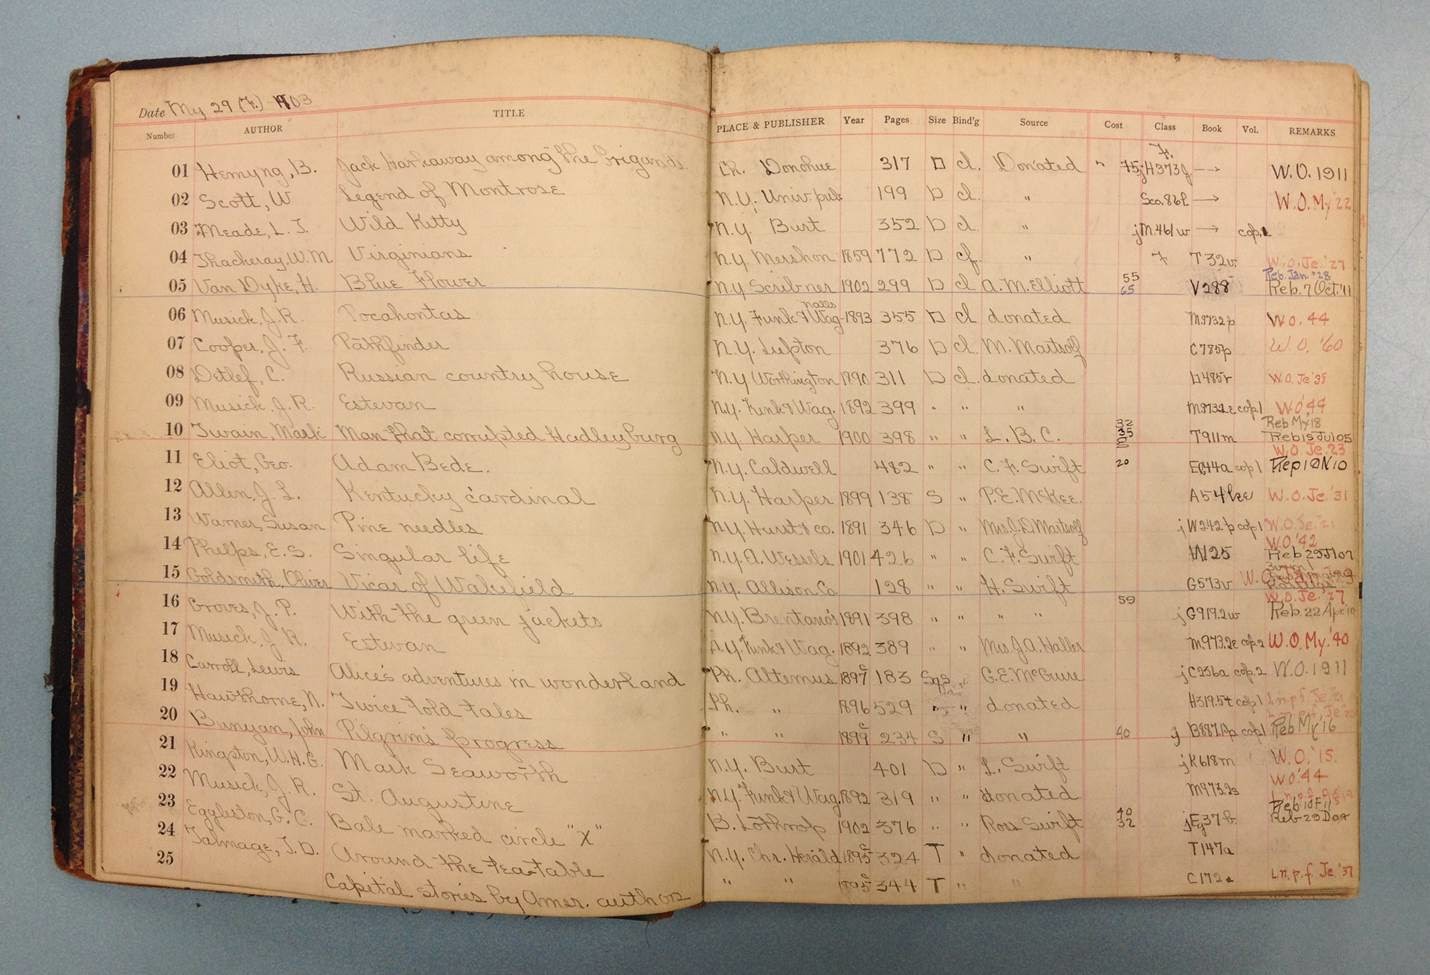 Date My 29 (F.) 1903
Number AUTHOR TITLE PLACE & PUBLISHER Year Pages Size Bind'g Source Cost Class Book Vol. REMARKS
01 Hemyng, B. Jack Harkaway among the brigands. Ch. Donohue 317 D cl. Donated " 75 F. jH373j → W.O. 1911
02 Scott, W Legend of Montrose N.Y. Univ. pub 199 D cl " Sco.86l → W.O. My '22
03 Meade, L.T. Wild Kitty N.Y Burt 352 D cl " jM461w → cop.
04 Thackeray, W.M Virginians N.Y. Mershon 1859 772 D cf. " F T32v W.O. Je. '27
05 Van Dyke, H. Blue Flower N.Y Scribner 1902 299 D cl A.M. Elliott 55 65 V288 Reb. Jan. '28 Reb. 7 Oct. '11
06 Musick, J.R. Pocahontas N.Y. Funk & Wag. 1893 355 D cl donated M9732p W.O. 44
07 Cooper, J. F. Pathfinder N.Y. Lupton 376 D cl. M. Maitsolf C785p W.O. '60
08 Detlef, C. Russian country house N.Y Worthington 1890 311 D cl. donated D485r W.O. Je '38
09 Musick, J.R. Estevan N.Y. Funk & Wag. 1892 399 " " " M9732e cop 1 W.O. '44
10 Twain, Mark Man that corrupted Hadleyburg N.Y. Harper 1900 398 " " L. B. C. T911m Reb My 18 Reb 15 Jl 05
11 Eliot, Geo. Adam Bede. N.Y. Caldwell 482 " " C.F. Swift 20 El44a cop 1 W.O. Je. 23 Rep 1 N 10
12 Allen, J. L. Kentucky cardinal N.Y. Harper 1899 138 S " P.E. McKee. A54ke W.O. Je '31
13 Warner, Susan Pine needles N.Y. Hurst & co. 1891 346 D " Mrs. J.F. Maitsolf jW242p cop 1 W.O. Je. '21
14 Phelps, E.S. Singular life N.Y. A. Wessels 1901 426 " " C. F. Swift W25 W.O. '42 Reb 25 Jl 07
15 Goldsmith, Oliver Vicar of Wakefield N.Y. Allison Co 128 " " H. Swift G573v W.O.
16 Groves, J. P. With the green jackets N.Y. Brentano's 1891 398 " " " " 59 jG9192w W.O. Je. '27 Reb. 22 Apr '10
17 Musick, J. R. Estevan N.Y. Funk & Wag. 1892 389 " " Mrs. J.A. Haller M9732e cop. 2 W.O. My. '40
18 Carroll, Lewis Alice's adventures in wonderland Ph. Altemus c1897 183 Sq S " C.E. McGrure jC236a cop. 2 W.O. 1911
19 Hawthorne, N. Twice told tales Ph. " 1896 529 " " donated H3195t cop 1 L.n.p.f. Je
20 Bunyan, John Pilgrim's Progress " " c1899 234 S " " 40 j B887p cop 1 Reb My 16
21 Kingston, W.H.G. Mark Seaworth N.Y. Burt 401 D " L. Swift jK618m W.O. '15.
22 Musick, J. R. St. Augustine N.Y. Funk & Wag. 1892 319 " " donated M9732s W.O. '44
23 Eggleston, G. C. Bale marked circle "X" B. Lothrop 1902 376 " " Ross Swift 40 32 jEg37b Reb 18 F 11 Reb 29 D 09
24 Talmage, T.D. Around the tea-table N.Y. Chr. Herald c1895 324 T " donated T147a
25 Capital stories by Amer. authors " " c1895 344 T " " C172a L.n.p.f Je '37